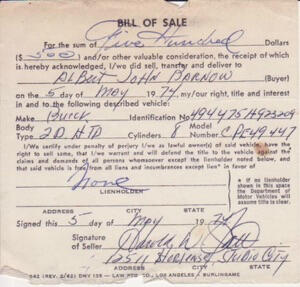 BILL OF SALE
For the sum of Five Hundred Dollars
($ 500) and/or other valuable consideration, the receipt of which
is hereby acknowledged, I/we did sell, transfer and deliver to
ALBERT JOHN BARNOW (Buyer)
on the 5 day of MAY 1974, my/our right, title and interest
in and to the following described vehicle:
Make BUICK Identification No 494475H923209
Body Type 2D. HTD Cylinders 8 Model License No. CPE 9447
I/We certify under penalty of perjury I/we as lawful owner(s) of said vehicle, have the
right to sell same, I/we warrant and will defend the title to the vehicle against the
claims and demands of all persons whomsoever except the lienholder noted below, and
that said vehicle is free from all liens and incumbrances except lien in favor of
None
LIENHOLDER
If no lienholder
shown in this space
the Department of
Motor Vehicles will
assume title is clear.
ADDRESS CITY STATE
Signed this 5 day of May 1974
Signature
of Seller
12511 Hortense, Studio City
ADDRESS CITY STATE